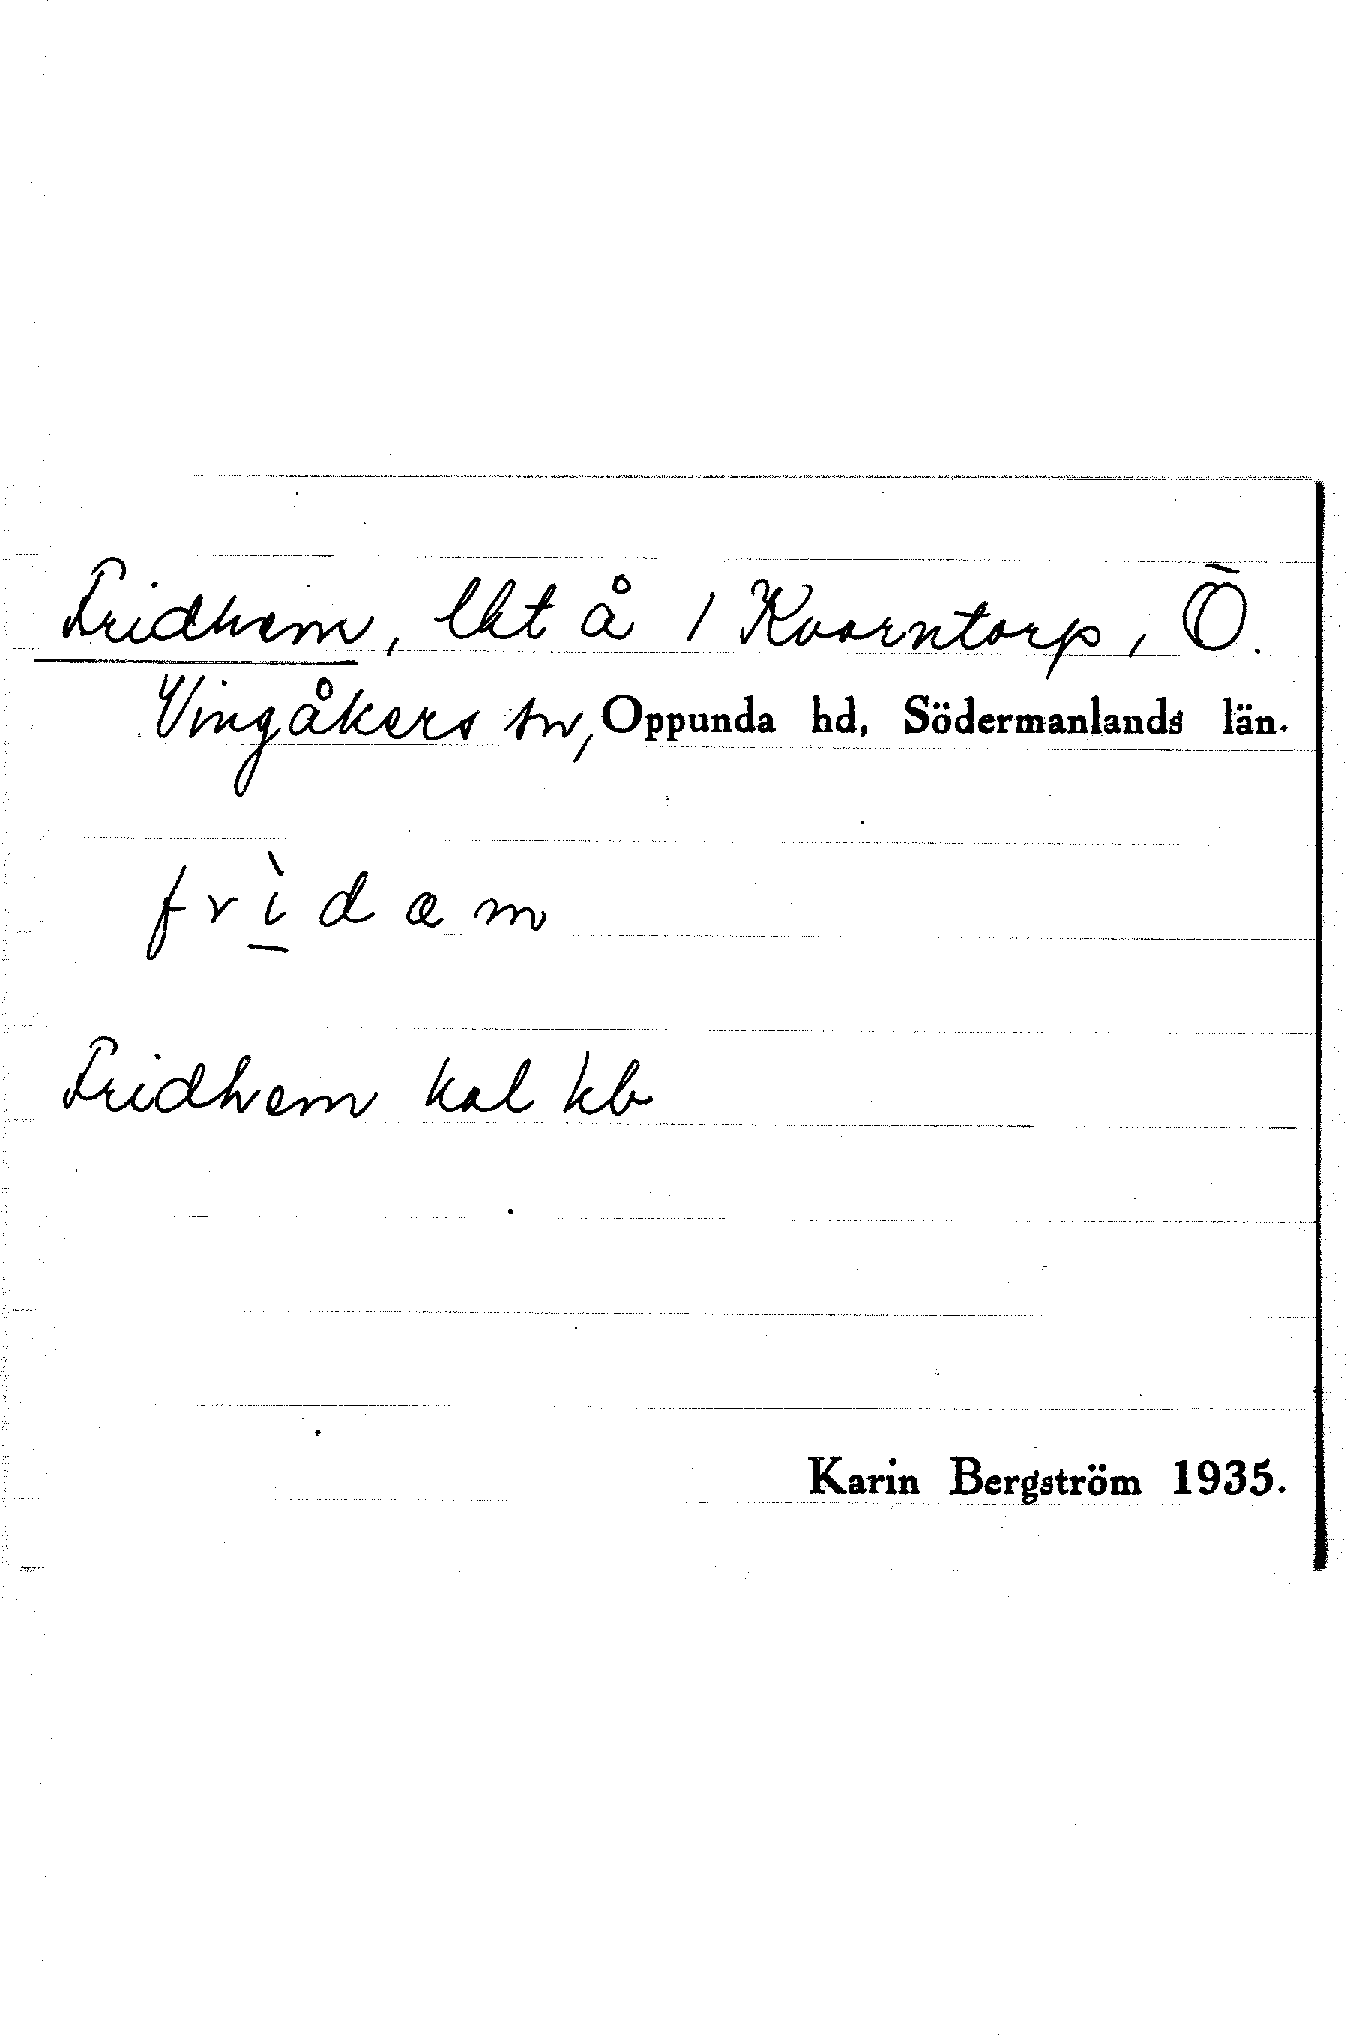 Fridhem, lht å 1 Kvarntorp, Ö.
Vingåkers sn, Oppunda hd, Södermanlands län.
frìdæm
Fridhem kal kb
Karin Bergström 1935.